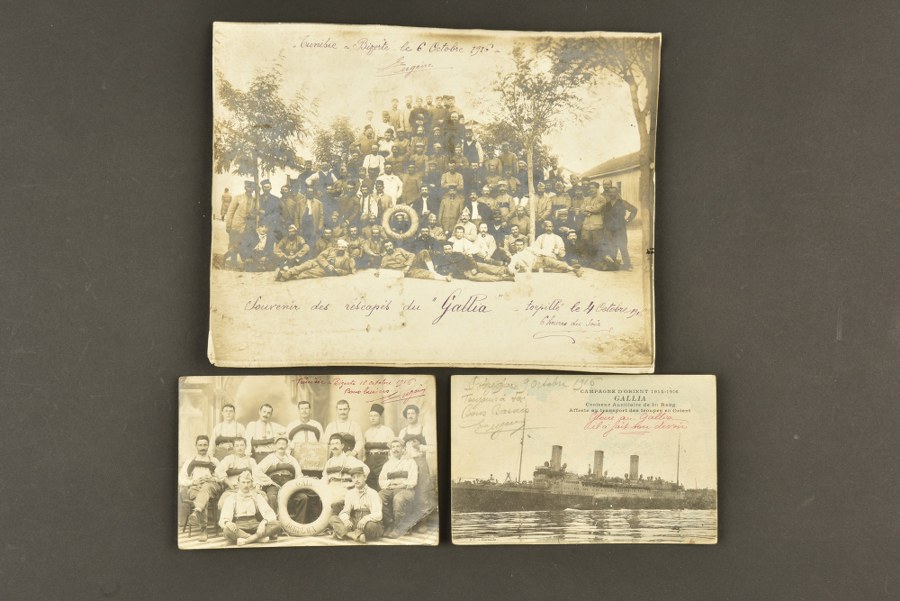 Bizerte le 6 Octobre 1916
Eugène
Souvenir des réscapés du "Gallia" Torpillé le 4 Octobre
6 heures du Soir
Bizerte 10 Octobre 1916
Bons baisers
Eugène
9 Octobre 1916
Bons Baisers
Eugène
CAMPAGNE D'ORIENT 1914-1916
GALLIA
Croiseur Auxiliaire de 1er Rang
Affecté au transport des troupes en Orient
Gallia
il a fait son devoir